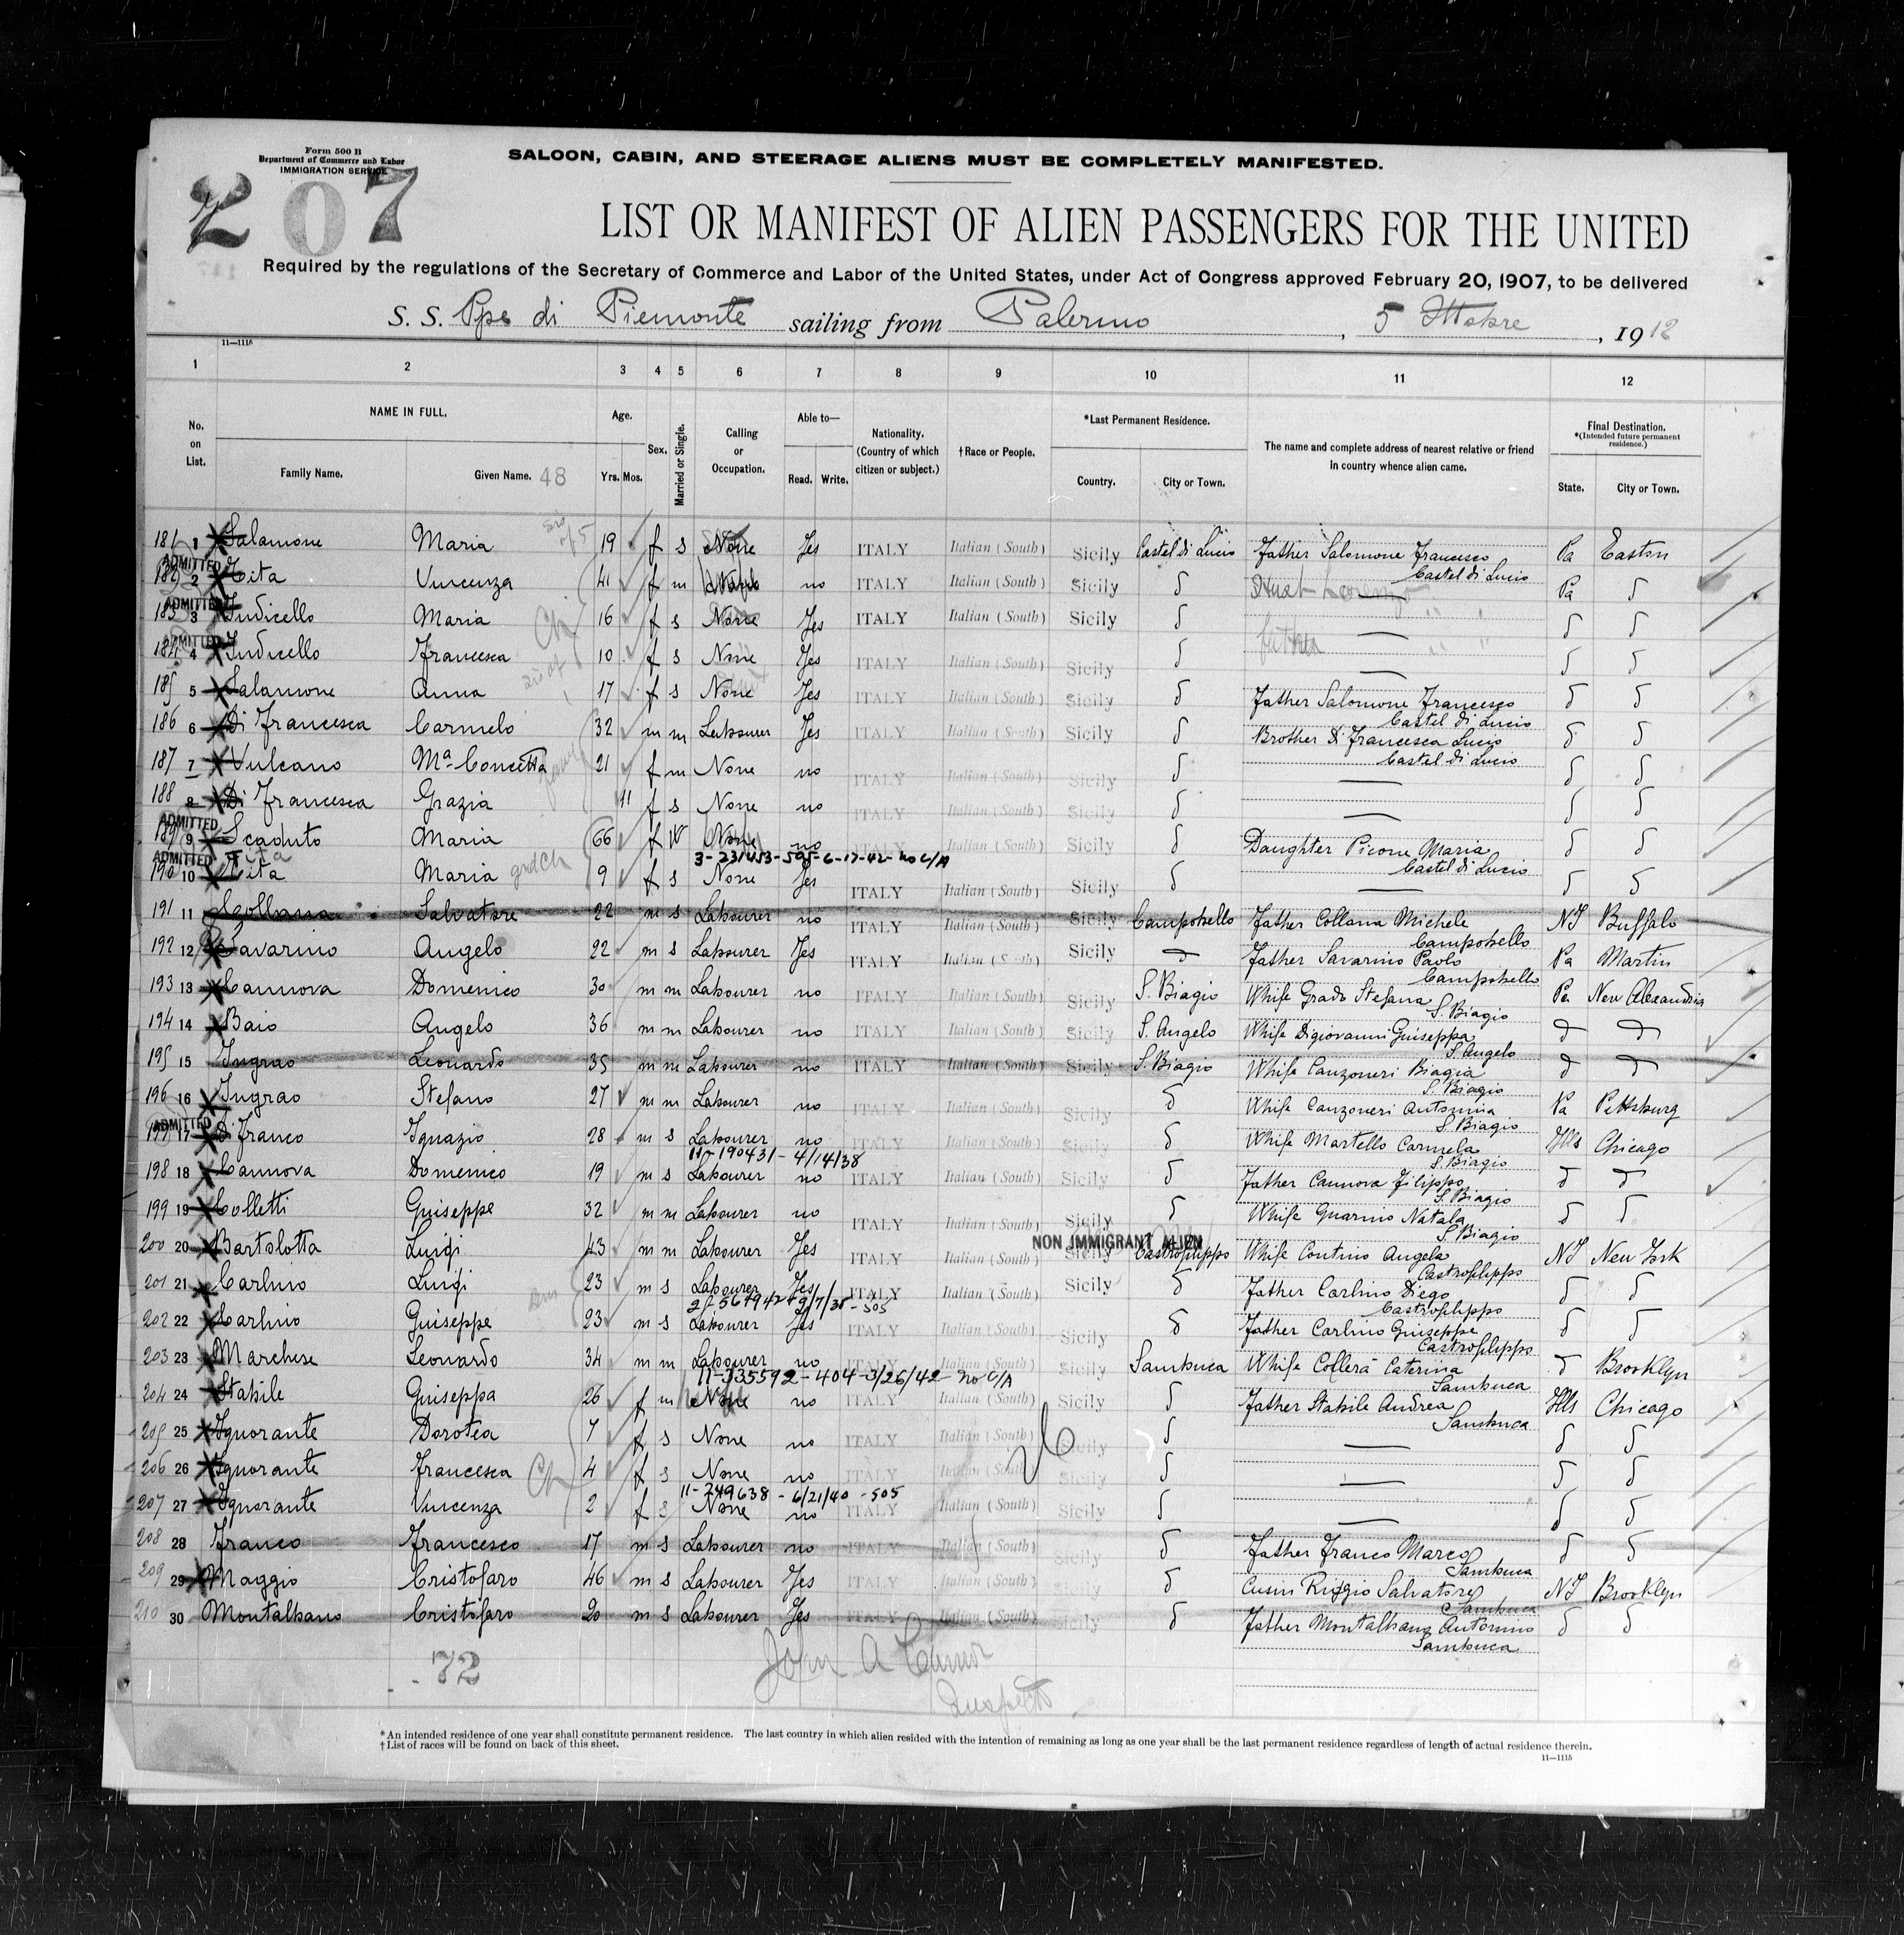 Form 500 B
Department of Commerce and Labor
IMMIGRATION SERVICE
SALOON, CABIN, AND STEERAGE ALIENS MUST BE COMPLETELY MANIFESTED.
207
LIST OR MANIFEST OF ALIEN PASSENGERS FOR THE UNITED
Required by the regulations of the Secretary of Commerce and Labor of the United States, under Act of Congress approved February 20, 1907, to be delivered
S. S. Ppe di Piemonte sailing from Palermo, 5 Ottobre, 1912
11—111A
1 2 3 4 5 6 7 8 9 10 11 12
No. on List. NAME IN FULL. Family Name. Given Name. 48 Age. Yrs. Mos. Sex. Married or Single. Calling or Occupation. Able to— Read. Write. Nationality. (Country of which citizen or subject.) †Race or People. *Last Permanent Residence. Country. City or Town. The name and complete address of nearest relative or friend in country whence alien came. Final Destination. *(Intended future permanent residence.) State. City or Town.
181 1 Salamone Maria 19 f s None Yes ITALY Italian (South) Sicily Castel di Lucio Father Salomone Francesco Pa Easton
Castel di Lucio
ADMITTED
182 2 Tita Vincenza 41 f m no ITALY Italian (South) Sicily δ Pa δ
ADMITTED
183 3 Iudicello Maria 16 f s None Yes ITALY Italian (South) Sicily δ — δ δ
ADMITTED
184 4 Iudicello Francesca 10 f s None Yes ITALY Italian (South) Sicily δ father — δ δ
185 5 Salamone Anna 17 f s None Yes ITALY Italian (South) Sicily δ Father Salomone Francesco δ δ
Castel di Lucio
186 6 Di Francesca Carmelo 32 m m Labourer Yes ITALY Italian (South) Sicily δ Brother Di Francesca Lucio δ δ
Castel di Lucio
187 7 Vulcano Ma Concetta 21 f m None no ITALY Italian (South) Sicily δ — δ δ
188 8 Di Francesca Grazia 11 f s None no ITALY Italian (South) Sicily δ — δ δ
ADMITTED
189 9 Scaduto Maria 66 f W None no ITALY Italian (South) Sicily δ Daughter Picone Maria δ δ
Castel di Lucio
3-231453-595-6-17-42- no C/A
ADMITTED Tita
190 10 Tita Maria grdch 9 f s None Yes ITALY Italian (South) Sicily δ — δ δ
191 11 Salvatore 22 m s Labourer no ITALY Italian (South) Sicily Campobello Father Collana Michele NY Buffalo
Campobello
192 12 Savarino Angelo 22 m s Labourer Yes ITALY Italian (South) Sicily δ Father Savarino Paolo Pa Martin
Campobello
193 13 Cannova Domenico 30 m m Labourer no ITALY Italian (South) Sicily S. Biagio Whife Grado Stefana Pa New Alexandria
S. Biagio
194 14 Baio Angelo 36 m m Labourer no ITALY Italian (South) Sicily S. Angelo Whife Digiovanni Guiseppa δ δ
S. Angelo
195 15 Ingrao Leonardo 35 m m Labourer no ITALY Italian (South) Sicily S. Biagio Whife Canzoneri Biagia δ δ
S. Biagio
196 16 Ingrao Stefano 27 m m Labourer no ITALY Italian (South) Sicily δ Whife Canzoneri Antonina Pa Pettsburg
S. Biagio
ADMITTED
197 17 Di Franco Ignazio 28 m s Labourer no ITALY Italian (South) Sicily δ Whife Martello Carmela Ills Chicago
S. Biagio
11-190431 - 4/14/38
198 18 Cannova Domenico 19 m s Labourer no ITALY Italian (South) Sicily δ Father Cannova Filippo δ δ
S. Biagio
199 19 Colletti Guiseppe 32 m m Labourer no ITALY Italian (South) Sicily δ Whife Guarino Natala δ δ
S. Biagio
NON IMMIGRANT ALIEN
200 20 Bartolotta Luigi 43 m m Labourer Yes ITALY Italian (South) Sicily Castrofilippo Whife Contino Angela NY New York
Castrofilippo
201 21 Carlino Luigi 23 m s Labourer Yes ITALY Italian (South) Sicily δ Father Carlino Diego δ δ
Castrofilippo
202 22 Carlino Guiseppe 23 m s Labourer Yes ITALY Italian (South) Sicily δ Father Carlino Guiseppe δ δ
Castrofilippo
203 23 Marchese Leonardo 34 m m Labourer no ITALY Italian (South) Sicily Sambuca Whife Collerà Caterina δ Brooklyn
Sambuca
11-335592-404-3/26/42- no C/A
204 24 Stabile Guiseppa 26 f m None no ITALY Italian (South) Sicily δ Father Stabile Andrea Ills Chicago
Sambuca
205 25 Ignorante Dorotea 7 f s None no ITALY Italian (South) Sicily δ — δ δ
206 26 Ignorante Francesca Ch 4 f s None no ITALY Italian (South) Sicily δ — δ δ
11-249638 - 6/21/40 -505
207 27 Ignorante Vincenza 2 f s None no ITALY Italian (South) Sicily δ — δ δ
208 28 Franco Francesco 17 m s Labourer no ITALY Italian (South) Sicily δ Father Franco Marco δ δ
Sambuca
209 29 Maggio Cristofaro 46 m s Labourer Yes ITALY Italian (South) Sicily δ Cusin Riggio Salvatore NY Brooklyn
Sambuca
210 30 Montalbano Cristofaro 20 m s Labourer Yes ITALY Italian (South) Sicily δ Father Montalbano Antonino δ δ
Sambuca
72
John A
*An intended residence of one year shall constitute permanent residence. The last country in which alien resided with the intention of remaining as long as one year shall be the last permanent residence regardless of length of actual residence therein.
†List of races will be found on back of this sheet.
11—1115